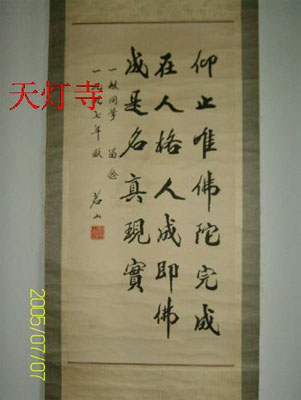 仰止唯佛陀完成
在人格人成即佛
成是名真現實
留念
一九九七年秋
茗山
天灯寺
2005/07/07